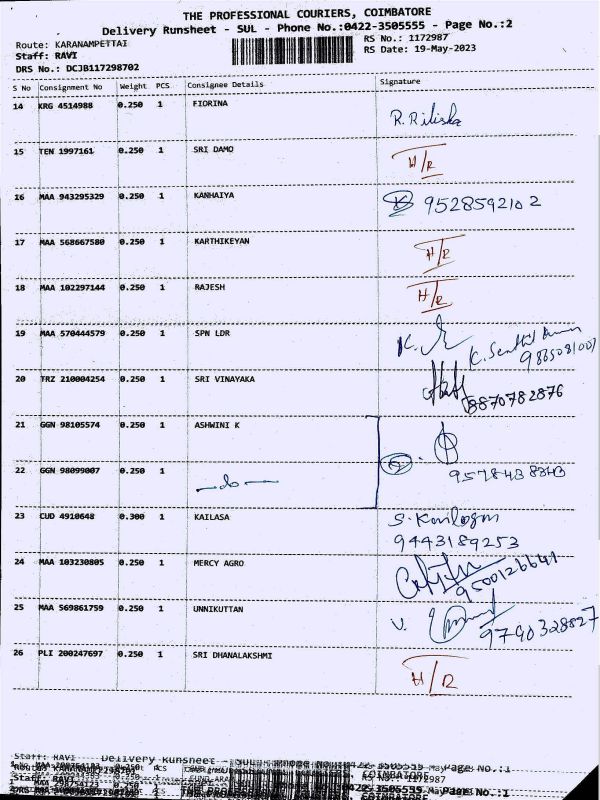 THE PROFESSIONAL COURIERS, COIMBATORE
Delivery Runsheet - SUL - Phone No.:0422-3505555 - Page No.:2
Route: KARANAMPETTAI
RS No.: 1172987
Staff: RAVI
RS Date: 19-May-2023
DRS No.: DCJB117298702
S No Consignment No Weight PCS Consignee Details Signature
14 KRG 4514988 0.250 1 FIORINA
15 TEN 1997161 0.250 1 SRI DAMO H/R
16 MAA 943295329 0.250 1 KANHAIYA 9528592102
17 MAA 568667580 0.250 1 KARTHIKEYAN H/R
18 MAA 102297144 0.250 1 RAJESH H/R
19 MAA 570444579 0.250 1 SPN LDR
20 TRZ 210004254 0.250 1 SRI VINAYAKA
8870782876
21 GGN 98105574 0.250 1 ASHWINI K
22 GGN 98099007 0.250 1 —do—
23 CUD 4910648 0.300 1 KAILASA
9443189253
24 MAA 103230805 0.250 1 MERCY AGRO
9500126641
25 MAA 569861759 0.250 1 UNNIKUTTAN
9790328827
26 PLI 200247697 0.250 1 SRI DHANALAKSHMI H/R